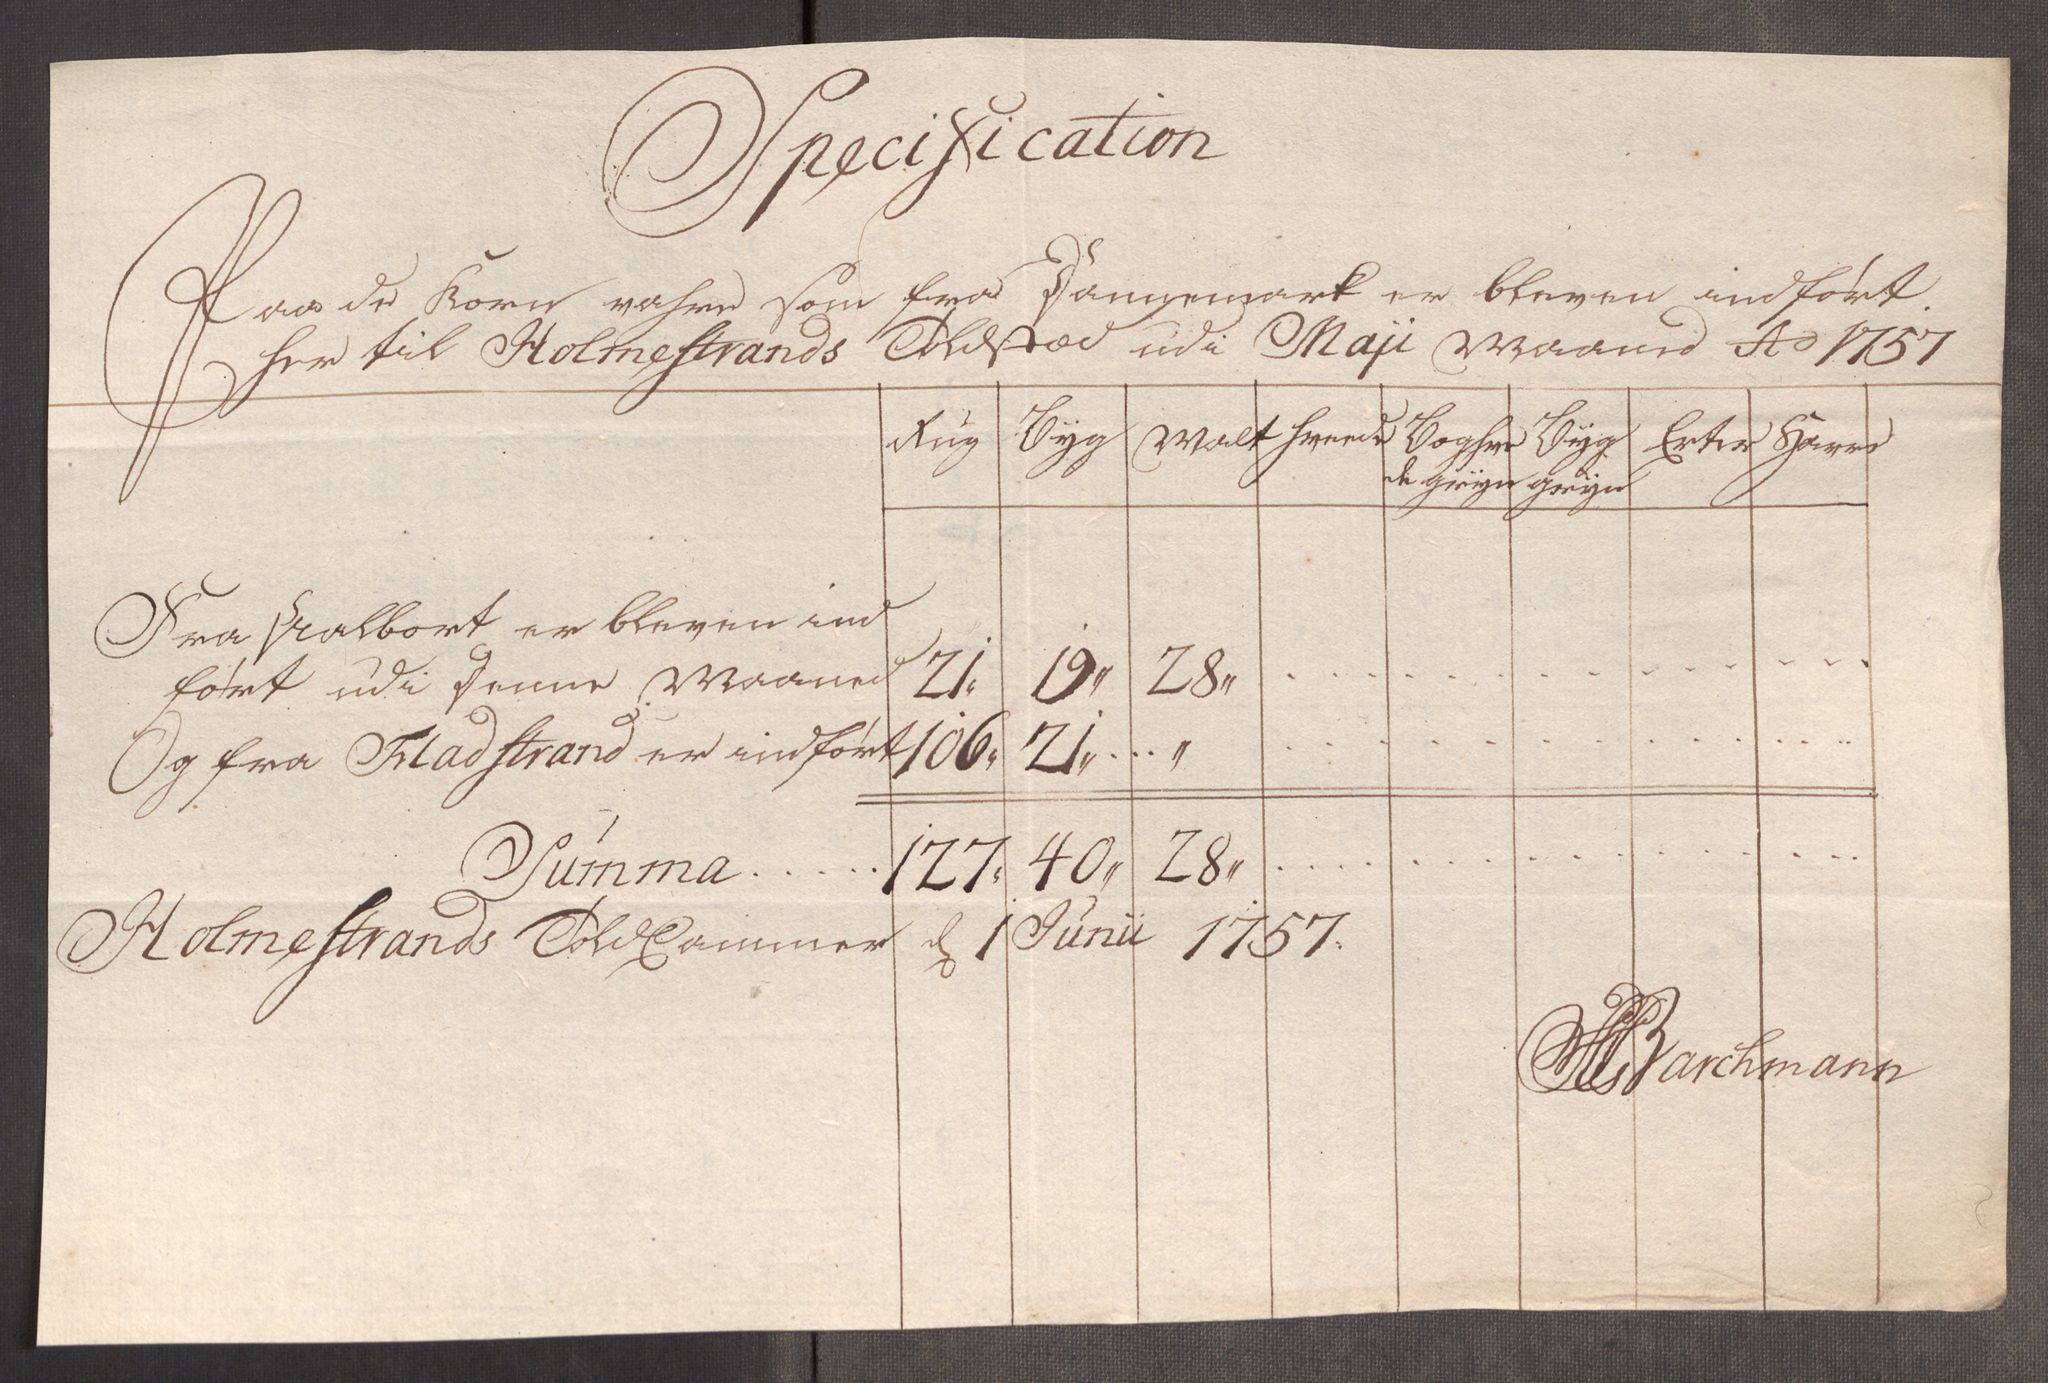 Specification
Paa de Korn vahre som fra Dannemark er bleven indført
her til Holmestrands Toldstæd udi Maji Maaned Ao 1757
Rug Byg Malt Hveede Boghve Byg Erter Havre
de gryn gryn
Fra Aalbort er bleven ind
ført udi denne Maaned 21„ 19„ 28„
Og fra Fladstrand er indført 106„ 21„ „
Summa 127„ 40„ 28„
Holmestrands ToldCammer d 1 Junii 1757.
Barchmann